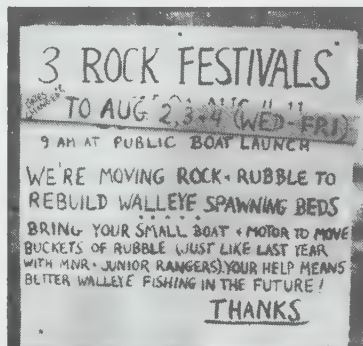 3 ROCK FESTIVALS
DATES CHANGED
TO AUG 2, 3 + 4 (WED - FRI)
9 AM AT PUBLIC BOAT LAUNCH
WE'RE MOVING ROCK + RUBBLE TO
REBUILD WALLEYE SPAWNING BEDS
BRING YOUR SMALL BOAT + MOTOR TO MOVE
BUCKETS OF RUBBLE (JUST LIKE LAST YEAR
WITH MNR + JUNIOR RANGERS). YOUR HELP MEANS
BETTER WALLEYE FISHING IN THE FUTURE!
THANKS